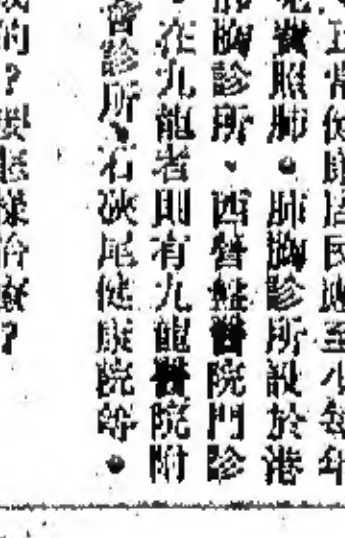 正常健康居民應至少每年
免費照肺。肺胸診所設於港
的胸診所、西營盤醫院門診
、在九龍者則有九龍醫院附
醫診所、石硤尾健康院等。
的？要怎樣治療？